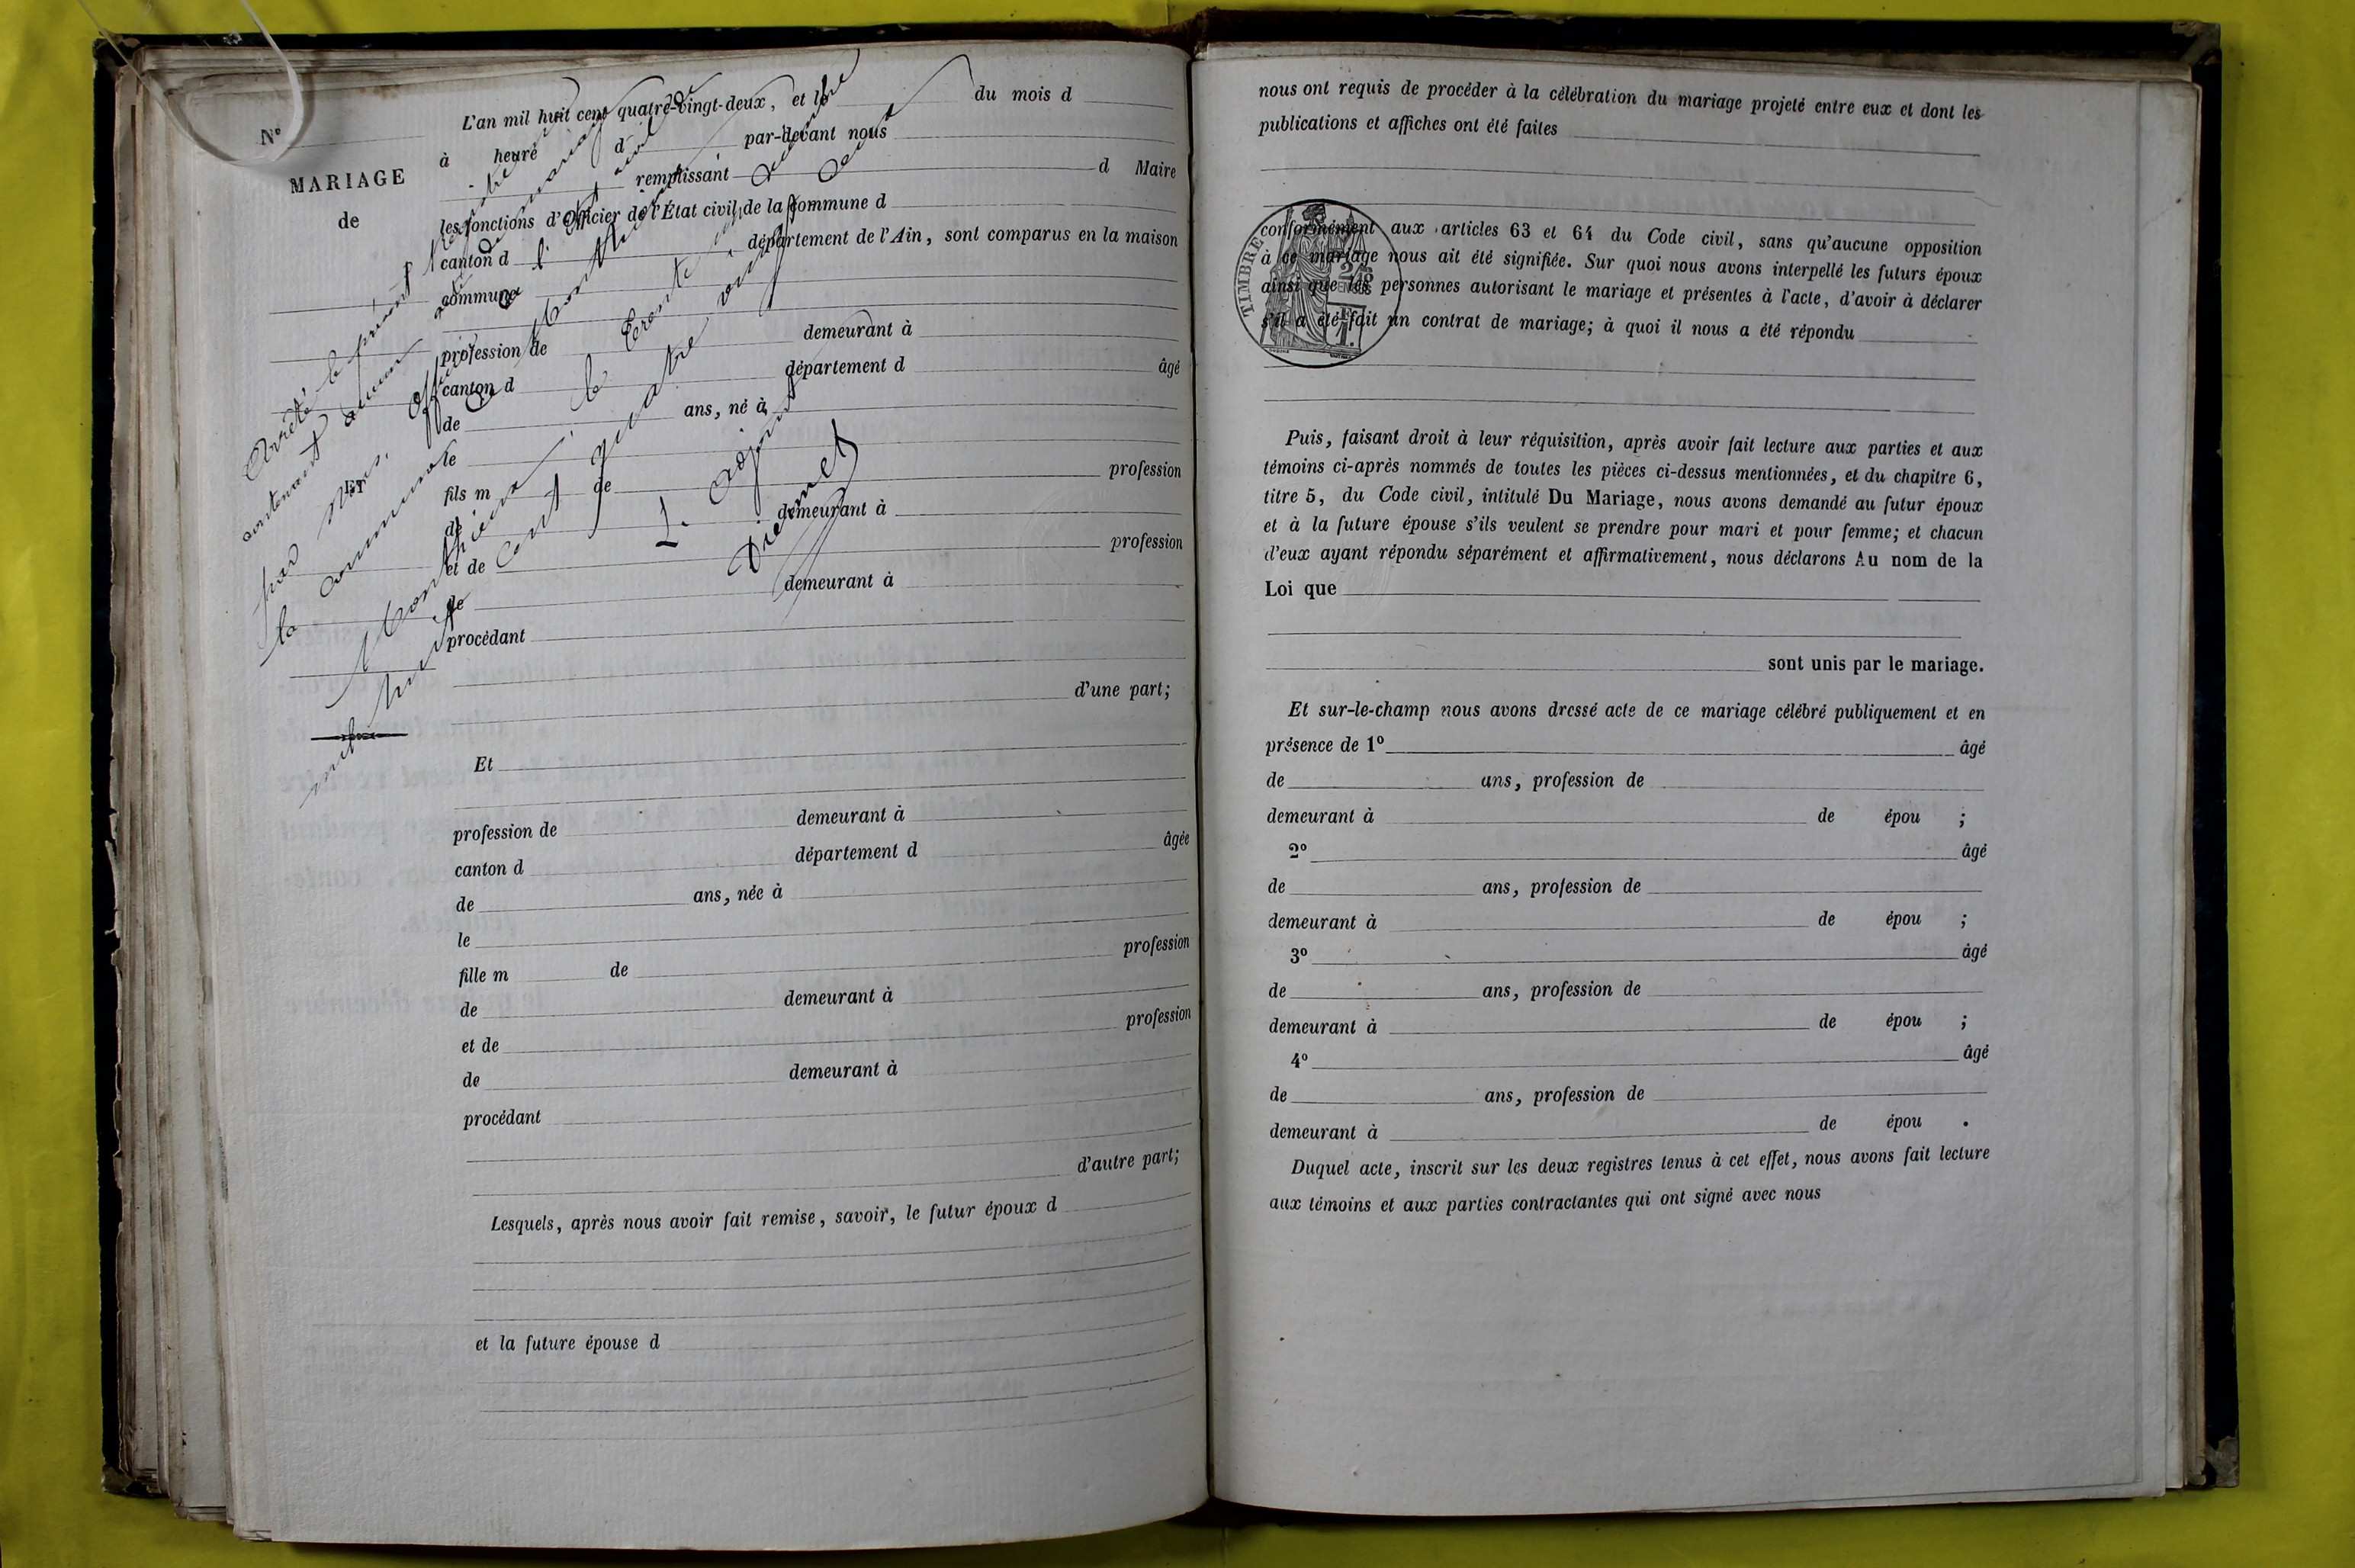 Nº
MARIAGE
de
Et
L'an mil huit cent quatre-vingt-deux, et le du mois d
à heure d par-devant nous
remplissant d Maire
les fonctions d'Officier de l'État civil de la commune d
canton d département de l'Ain, sont comparus en la maison
commune
profession de demeurant à
canton d département d âgé
de ans, né à
le
fils m de profession
de demeurant à
et de profession
de demeurant à
procédant
d'une part;
Et
profession de demeurant à
canton d département d âgée
de ans, née à
le
fille m de profession
de demeurant à
et de profession
de demeurant à
procédant
d'autre part;
Lesquels, après nous avoir fait remise, savoir, le futur époux d
et la future épouse d
Arrêté le présent
contenant aucun mariage
par nous, officier de l'état civil de
la commune de
le trente
mil huit cent quatre vingt
L'adjoint
nous ont requis de procéder à la célébration du mariage projeté entre eux et dont les
publications et affiches ont été faites
TIMBRE
conformément aux articles 63 et 64 du Code civil, sans qu'aucune opposition
à ce mariage nous ait été signifiée. Sur quoi nous avons interpellé les futurs époux
ainsi que les personnes autorisant le mariage et présentes à l'acte, d'avoir à déclarer
s'il a été fait un contrat de mariage; à quoi il nous a été répondu
Puis, faisant droit à leur réquisition, après avoir fait lecture aux parties et aux
témoins ci-après nommés de toutes les pièces ci-dessus mentionnées, et du chapitre 6,
titre 5, du Code civil, intitulé Du Mariage, nous avons demandé au futur époux
et à la future épouse s'ils veulent se prendre pour mari et pour femme; et chacun
d'eux ayant répondu séparément et affirmativement, nous déclarons Au nom de la
Loi que
sont unis par le mariage.
Et sur-le-champ nous avons dressé acte de ce mariage célébré publiquement et en
présence de 1º âgé
de ans, profession de
demeurant à de épou ;
2º âgé
de ans, profession de
demeurant à de épou ;
3º âgé
de ans, profession de
demeurant à de épou ;
4º âgé
de ans, profession de
demeurant à de épou .
Duquel acte, inscrit sur les deux registres tenus à cet effet, nous avons fait lecture
aux témoins et aux parties contractantes qui ont signé avec nous